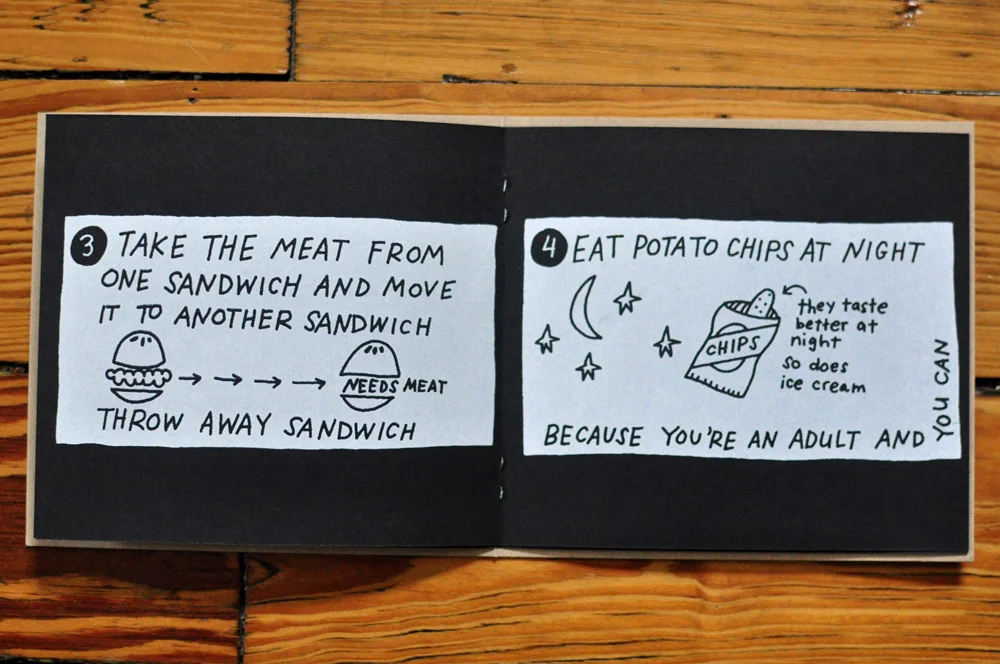 3 TAKE THE MEAT FROM
ONE SANDWICH AND MOVE
IT TO ANOTHER SANDWICH
NEEDS MEAT
THROW AWAY SANDWICH
4 EAT POTATO CHIPS AT NIGHT
they taste
better at
night
so does
ice cream
CHIPS
BECAUSE YOU'RE AN ADULT AND
YOU CAN